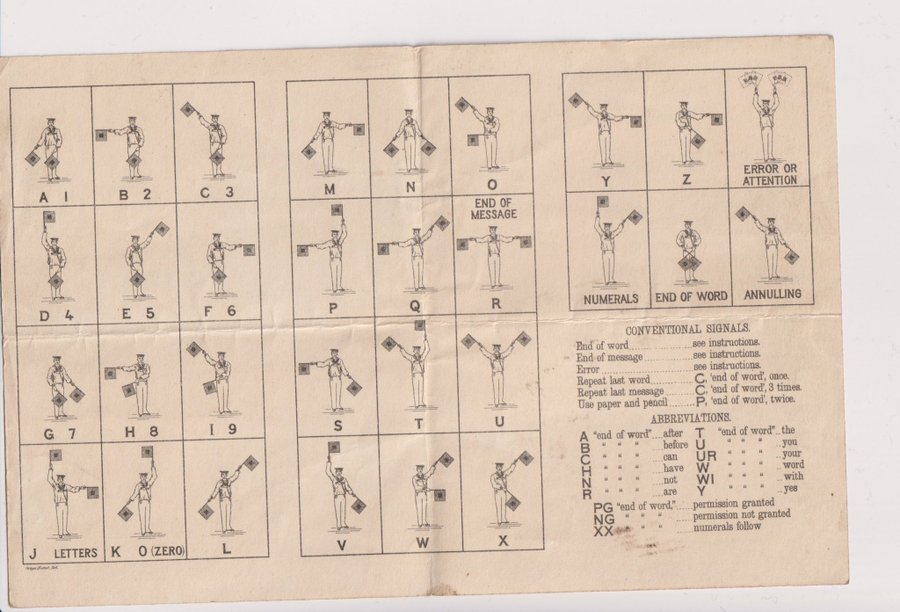 A 1 B 2 C 3
D 4 E 5 F 6
G 7 H 8 I 9
J LETTERS K 0 (ZERO) L
M N O
END OF
MESSAGE
P Q R
S T U
V W X
Y Z ERROR OR
ATTENTION
NUMERALS END OF WORD ANNULLING
CONVENTIONAL SIGNALS.
End of word..............see instructions.
End of message............see instructions.
Error........................see instructions.
Repeat last word..........C, 'end of word', once.
Repeat last message.......C, 'end of word', 3 times.
Use paper and pencil......P, 'end of word', twice.
ABBREVIATIONS.
A "end of word"....after T "end of word"...the
B " " " ....before U " " " ...you
C " " " ....can UR " " " ...your
H " " " ....have W " " " ...word
N " " " ....not WI " " " ...with
R " " " ....are Y " " " ...yes
PG "end of word,"......permission granted
NG " " " ......permission not granted
XX " " " ......numerals follow